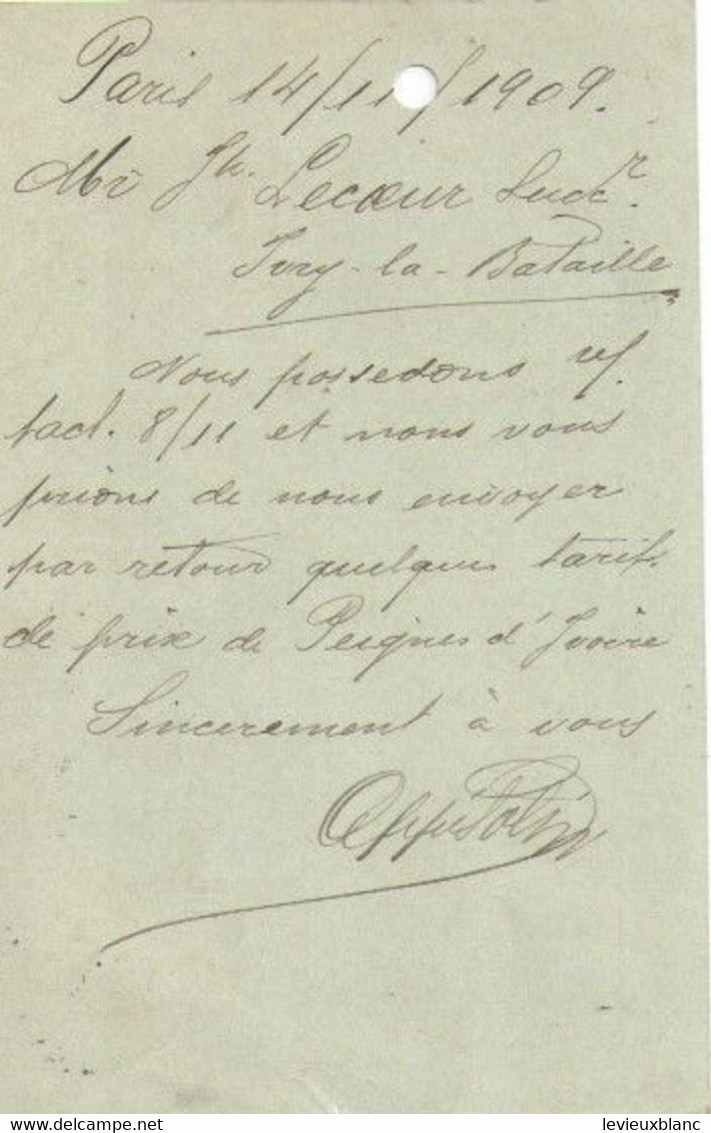 Paris 14/11/1909.
Mr Jh. Lecœur Succr.
Ivry-la-Bataille
Nous possedons
fact. 8/11 et nous vous
prions de nous envoyer
par retour quelques tarifs
de prix de Peignes d'Ivoire
Sincerement à vous
delcampe.net
levieuxblanc